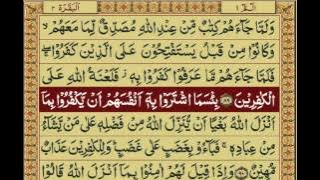 الٓمّٓ ١
البقرة ٢
وَلَمَّا جَآءَهُمْ كِتٰبٌ مِّنْ عِنْدِ اللّٰهِ مُصَدِّقٌ لِّمَا مَعَهُمْ ۙ
وَكَانُوْا مِنْ قَبْلُ يَسْتَفْتِحُوْنَ عَلَى الَّذِيْنَ كَفَرُوْا ۚۖ
فَلَمَّا جَآءَهُمْ مَّا عَرَفُوْا كَفَرُوْا بِهٖ ؗ فَلَعْنَةُ اللّٰهِ عَلَى
الْكٰفِرِيْنَ ۝ بِئْسَمَا اشْتَرَوْا بِهٖۤ اَنْفُسَهُمْ اَنْ يَّكْفُرُوْا بِمَاۤ
اَنْزَلَ اللّٰهُ بَغْيًا اَنْ يُّنَزِّلَ اللّٰهُ مِنْ فَضْلِهٖ عَلٰى مَنْ يَّشَآءُ
مِنْ عِبَادِهٖ ۚ فَبَآءُوْ بِغَضَبٍ عَلٰى غَضَبٍ ؕ وَلِلْكٰفِرِيْنَ عَذَابٌ
مُّهِيْنٌ ۝ وَاِذَا قِيْلَ لَهُمْ اٰمِنُوْا بِمَاۤ اَنْزَلَ اللّٰهُ قَالُوْا